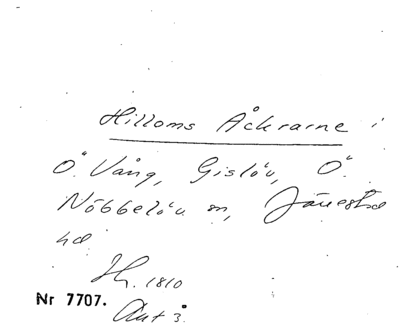 Hilloms Åkrarne i
Ö. Vång, Gislöv, Ö.
Nöbbelöv sn, Järrestad
hd
Jb. 1810
Nr 7707.
Akt 3.